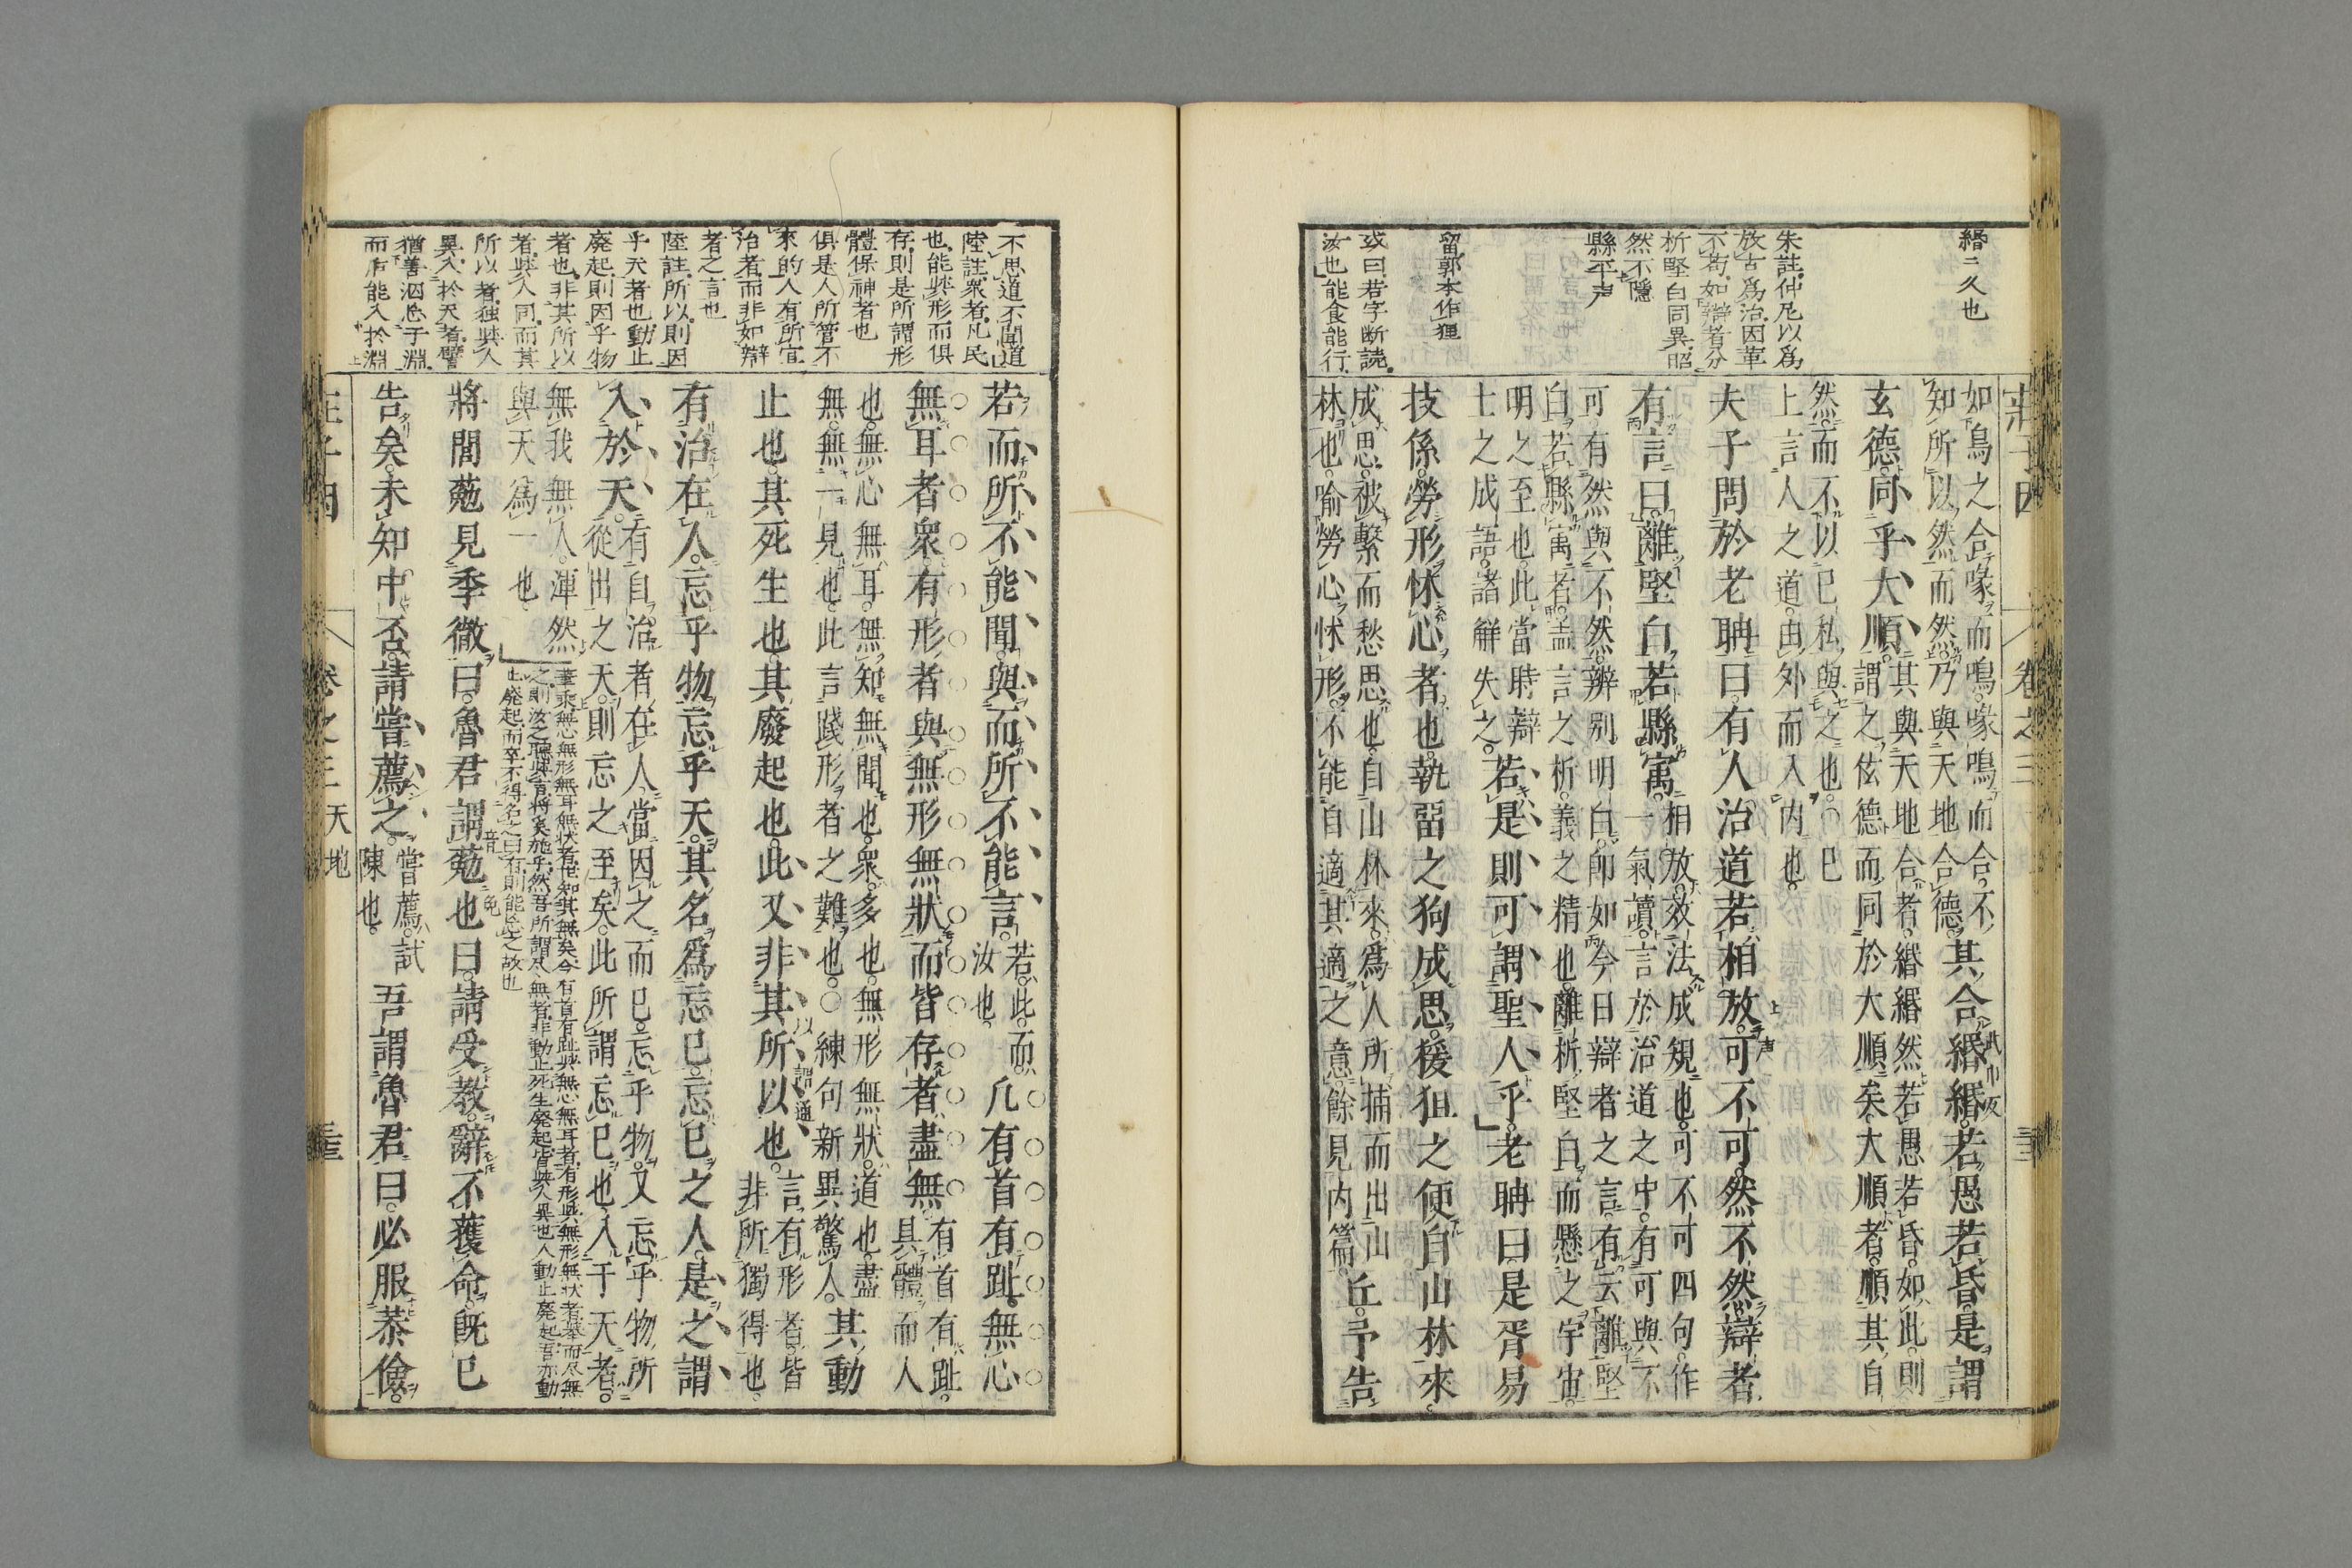 緡ニ久也
朱註仲尼以爲
放古爲治因革
不苟如辯者分
析堅白同異昭
然不隱
縣平声
畱郭本作狸
或曰若字断読
汝也能食能行
莊子因 卷之三
如鳥之合喙而鳴喙鳴而合不
知所以然而然乃與天地合德
其合緡緡若愚若昏是謂
玄德同乎大順
其與天地合者緡緡然若愚若昏如此則
謂之佉德而同於大順矣大順者順其自
然而不以已私與之也〇已
上言人之道由外而入内也
夫子問於老聃曰有人治道若相放可不可然不然辯者
有言曰離堅白若縣㝢
相放效法成規也可不可四句作
一氣讀言於治道之中有可與不
可有然與不然辨別明白即如今日辯者之言有云離堅
白若縣㝢者蓋言之析義之精也離析堅白而懸之宇宙
明之至也此當時辯
士之成語諸解失之
若是則可謂聖人乎老聃曰是胥易
技係勞形怵心者也執畱之狗成思猨狙之便自山林來
成思被繫而愁思也自山林來爲人所捕而出山
林也喻勞心怵形不能自適其適之意餘見内篇
丘予告
不思道不聞道
陸註衆者凡民
也能與形而俱
存則是所謂形
體保神者也
俱是人所管不
來的人有所宜
治者而非如辯
者之言也
陸註所以則因
乎天者也動止
廃起則因乎物
者也非其所以
者與人同而其
所以者独與人
異入於天者譬
猶善泅忘于淵
而后能入於淵
若而所不能聞與而所不能言
若此而
汝也
凡有首有趾無心
無耳者衆有形者與無形無狀而皆存者盡無
有首有趾
具體而人
也無心無耳無知無聞也衆多也無形無狀道也盡
無無一見也此言踐形者之難也〇練句新異驚人
其動
止也其死生也其廢起也此又非其所以也
言有形者皆
非所獨得也
有治在人忘乎物忘乎天其名爲忘已忘已之人是之謂
入於天
有自治者在人當因之而已忘乎物又忘乎物所
從出之天則忘之至矣此所謂忘已也入于天者
無我無人渾然
與天爲一也
將閭葂見季徹曰魯君謂葂也曰請受教辭不獲命既已
告矣未知中否請嘗薦之
嘗薦試
陳也
吾謂魯君曰必服恭儉
卷之三 天地